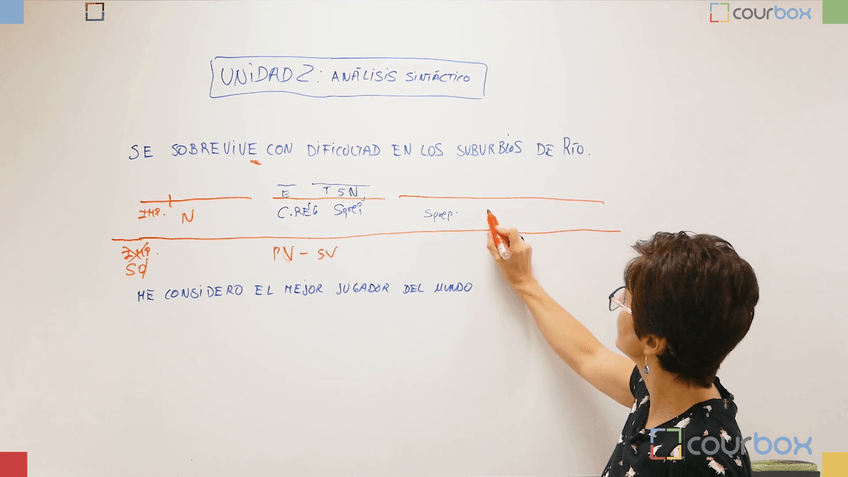 courbox
UNIDAD 2: ANÁLISIS SINTÁCTICO
SE SOBREVIVE CON DIFICULTAD EN LOS SUBURBIOS DE RÍO.
E T S N
IMP. N C.REG Sprep.
PV - SV
ME CONSIDERO EL MEJOR JUGADOR DEL MUNDO
courbox